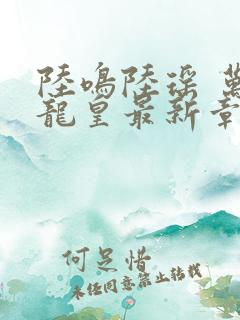 陸鳴陸瑶 萬
龍皇最新章
何足惜
未任同意禁止转载